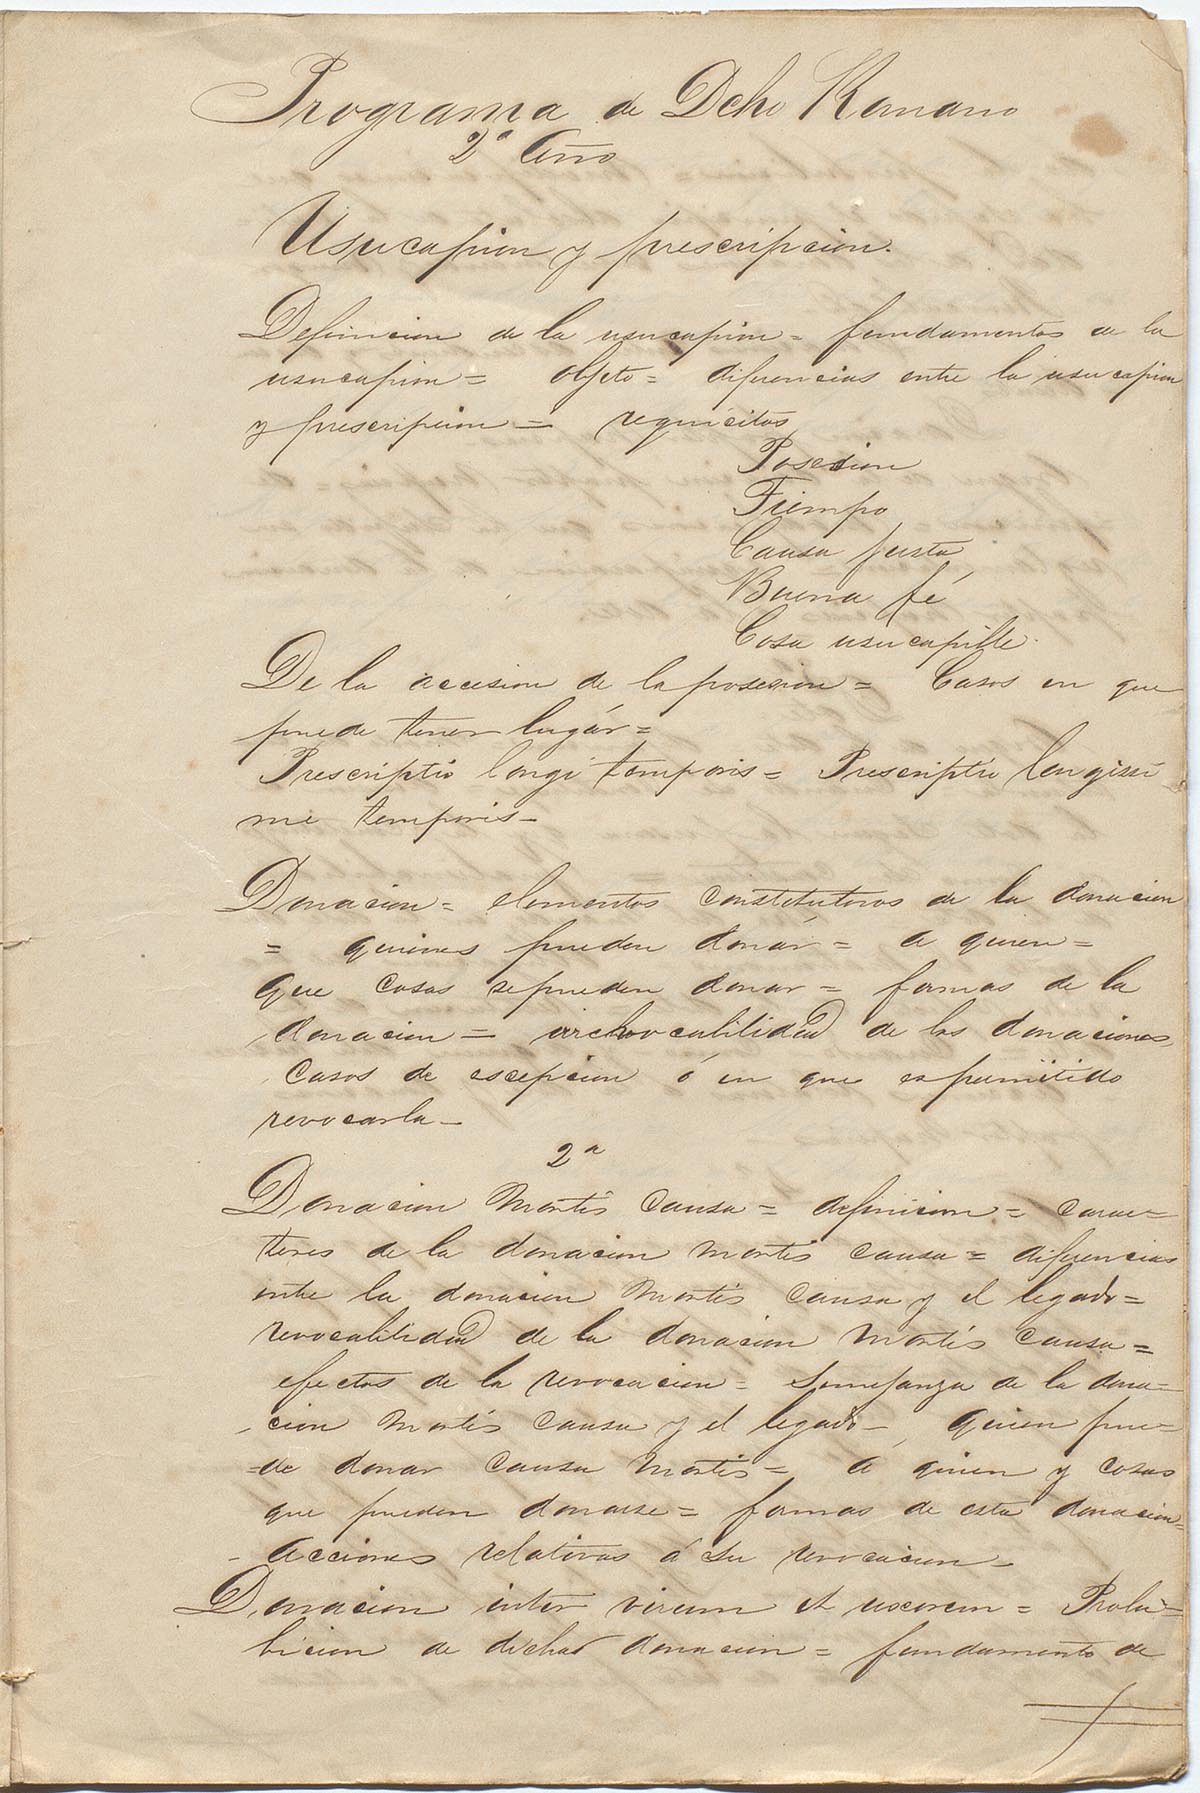 Programa de Dcho Romano
2º Año
Usucapion y prescripcion.
Definicion de la usucapion = fundamentos de la
usucapion = objeto = diferencias entre la usucapion
y prescripcion = requicitos
Posesion
Tiempo
Causa justa
Buena fé
Cosa usucapible.
De la accesion de la posesion = Casos en que
puede tener lugár =
Prescriptio longi temporis = Prescriptio longissi
me temporis -
Donacion = elementos constitutivos de la donacion
= quienes pueden donár = a quien =
que cosas se pueden donar = formas de la
donacion = de las donaciones
Casos de escepcion ó en que es permitido
revocarla -
2ª
Donacion Mortis causa = definicion = carac=
teres de la donacion mortis causa = diferencias
entre la donacion Mortis causa y el legado =
revocabilidad de la donacion Mortis causa =
efectos de la revocacion = Semejanza de la dona=
cion Mortis causa y el legado -, quien pue=
=de donar causa Mortis = á quien y cosas
que pueden donarse = formas de esta donacion =
- acciones relativas á su revocacion -
Donacion inter virum et uxorem = Prohi=
bicion de dicha donacion = fundamento de